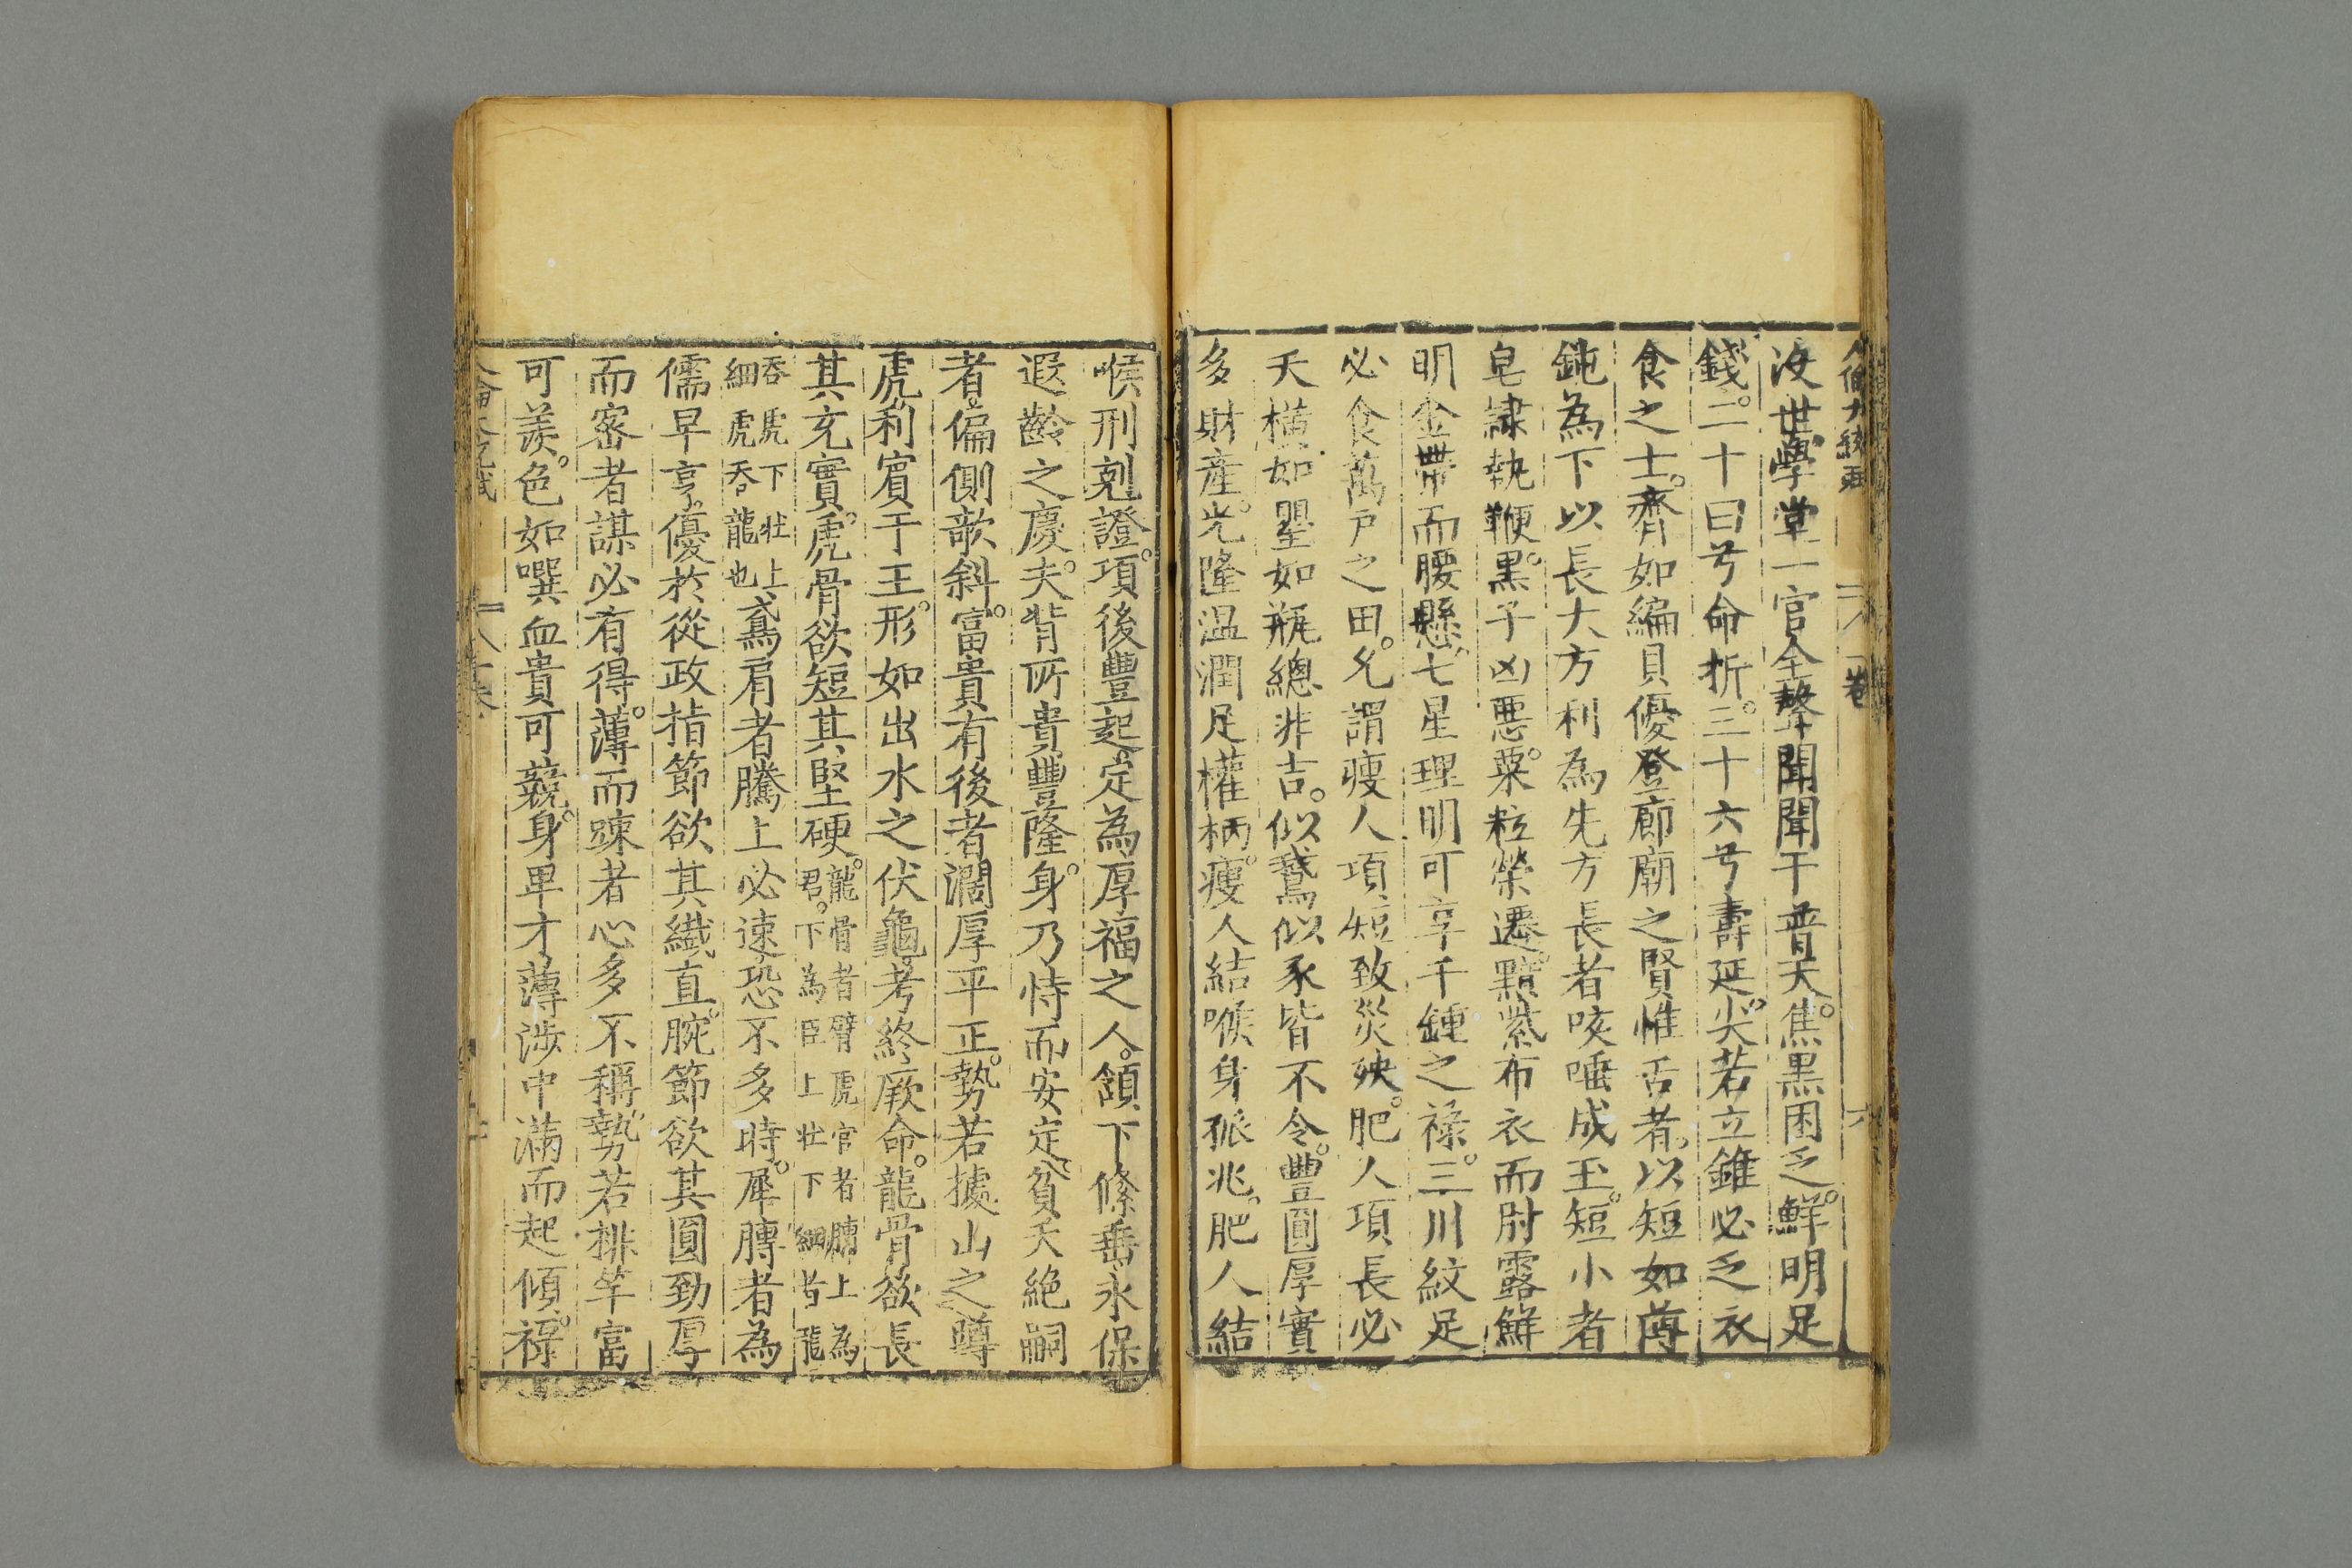 人倫大統賦
卷
六
汝世學堂一官全聲聞聞于普天。焦黑困乏。鮮明足
錢。二十曰兮命折。三十六兮壽延。尖若立錐必乏衣
食之士。齊如編貝優登廊廟之賢惟舌者。以短如蓴
鈍為下以長大方利為先方長者咳唾成玉。短小者
皂隷執鞭。黑子凶惡。粟粒榮遷。黯紫布衣而尉露鮮
明金帶而腰懸七星理明可享千鍾之祿。三川紋足
必食萬戶之田。允謂瘦人項短致災殃。肥人項長必
夭橫如罌如瓶總非吉。似鵞似豕皆不令。豐圓厚實
多財產。光隆温潤足權柄。瘦人結喉身孤兆。肥人結
喉刑剋證。項後豐起定為厚福之人。頷下絛垂永保
遐齡之慶。夫背所貴豐隆。身乃恃而安定。貧夭絶嗣
者。偏側欹斜。富貴有後者濶厚平正。勢若據山之蹲
虎利賓于王。形如出水之伏龜。考終厥命。龍骨欲長
其充實。虎骨欲短其堅硬。龍骨者臂虎官者膊上為
君。下為臣上壯下細者龍
吞虎下壯上
細虎吞龍也鳶肩者騰上必速恐不多時。犀膊者為
儒早亨。優於從政指節欲其纎直。腕節欲其圓勁厚
而密者謀必有得。薄而踈者心多不稱。勢若排竿富
可羨。色如噀血貴可競。身卑才薄涉中滿而起傾。祿